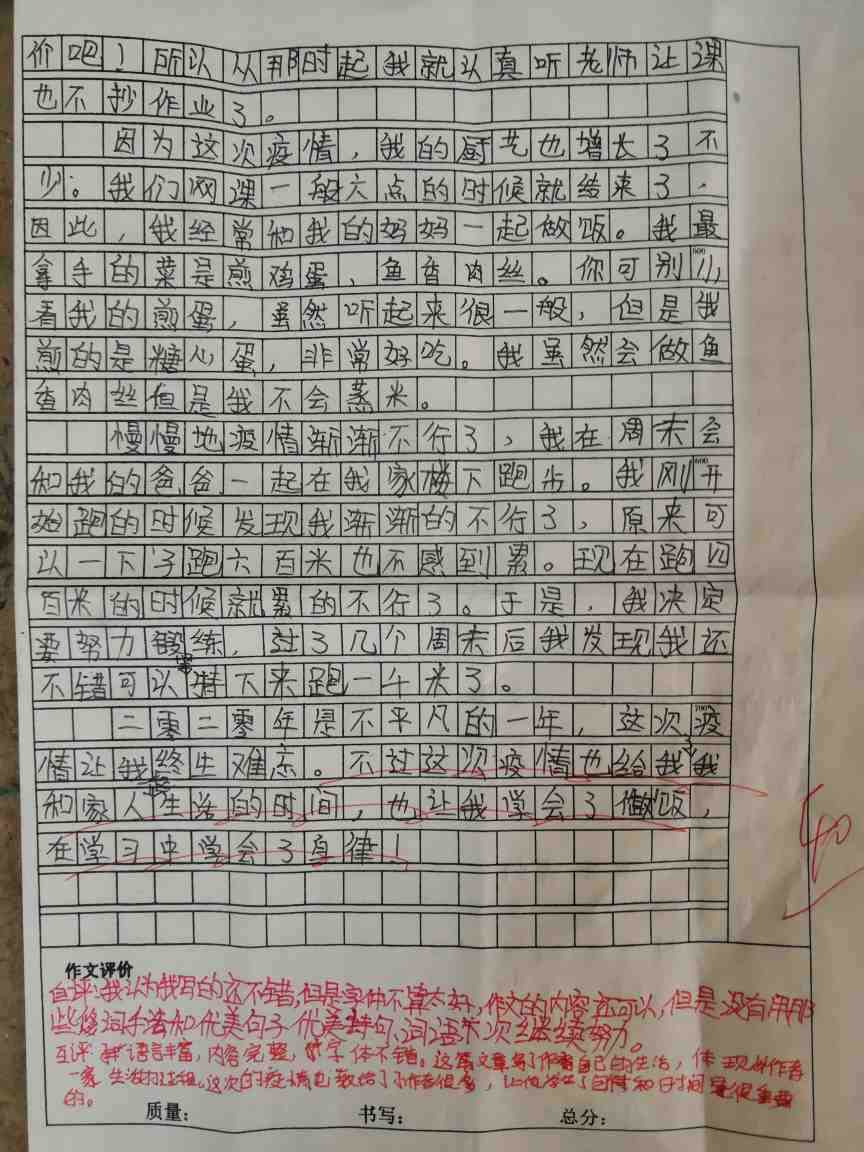 价吧！所以从那时起我就认真听老师让课
也不抄作业了。
因为这次疫情，我的厨艺也增长了不
少。我们网课一般六点的时候就结束了，
因此，我经常和我的妈妈一起做饭。我最
拿手的菜是煎鸡蛋，鱼香肉丝。你可别小
看我的煎蛋，虽然听起来很一般，但是我
煎的是糖心蛋，非常好吃。我虽然会做鱼
香肉丝但是我不会蒸米。
慢慢地疫情渐渐不行了，我在周末会
和我的爸爸一起在我家楼下跑步。我刚开
始跑的时候发现我渐渐的不行了，原来可
以一下子跑六百米也不感到累。现在跑四
百米的时候就累的不行了。于是，我决定
要努力锻练，过了几个周末后我发现我还
不错可以坚持下来跑一千米了。
二零二零年是不平凡的一年，这次疫
情让我终生难忘。不过这次疫情也给我了我
和家人生活的时间，也让我学会了做饭，
在学习中学会了自律！
40
作文评价
自评：我认为我写的还不错，但是字体不算太好，作文的内容还可以，但是没有用那
些修词手法和优美句子优美诗句、词语下次继续努力。
互评 语言丰富，内容完整，字体不错。这篇文章写了作者自己的生活，体现出作者
一家生活的过程，这次的疫情也教给了作者很多，让他学会了自律和时间是很宝贵
的。
质量： 书写： 总分：